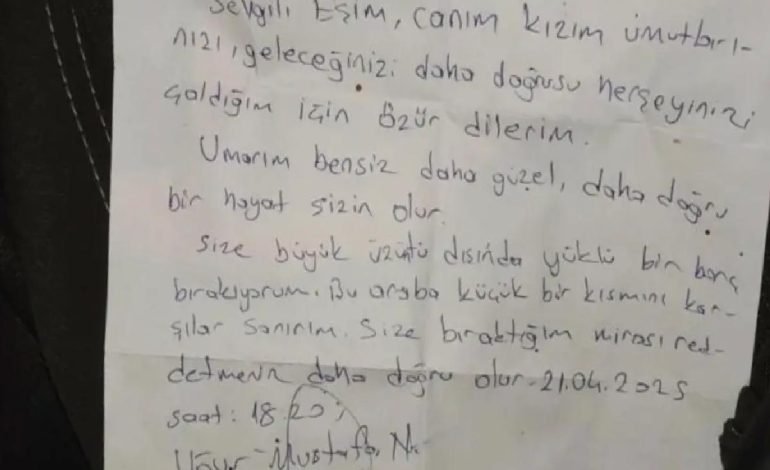 Sevgili Eşim, canım kızım ümutları-
nızı, geleceğinizi daha doğrusu herşeyinizi
çaldığım için Özür dilerim.
Umarım bensiz daha güzel, daha doğru
bir hayat sizin olur.
Size büyük üzüntü dışında yüklü bir borç
bırakıyorum. Bu araba küçük bir kısmını kar-
şılar sanırım. Size bıraktığım mirası red-
detmeniz daha doğru olur. 21.04.2025
saat: 18.20
Uğur Mustafa N.